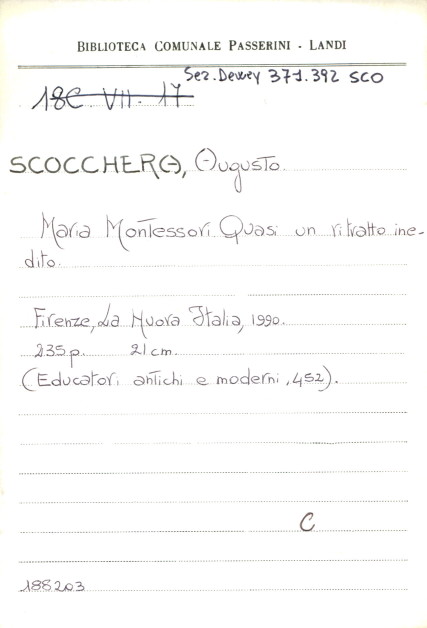 BIBLIOTECA COMUNALE PASSERINI - LANDI
Sez. Dewey 371.392 SCO
18C VII. 17
SCOCCHERA, Augusto.
Maria Montessori. Quasi un ritratto ine-
dito.
Firenze, La Nuova Italia, 1990.
235 p. 21 cm.
(Educatori antichi e moderni, 452).
C
188203